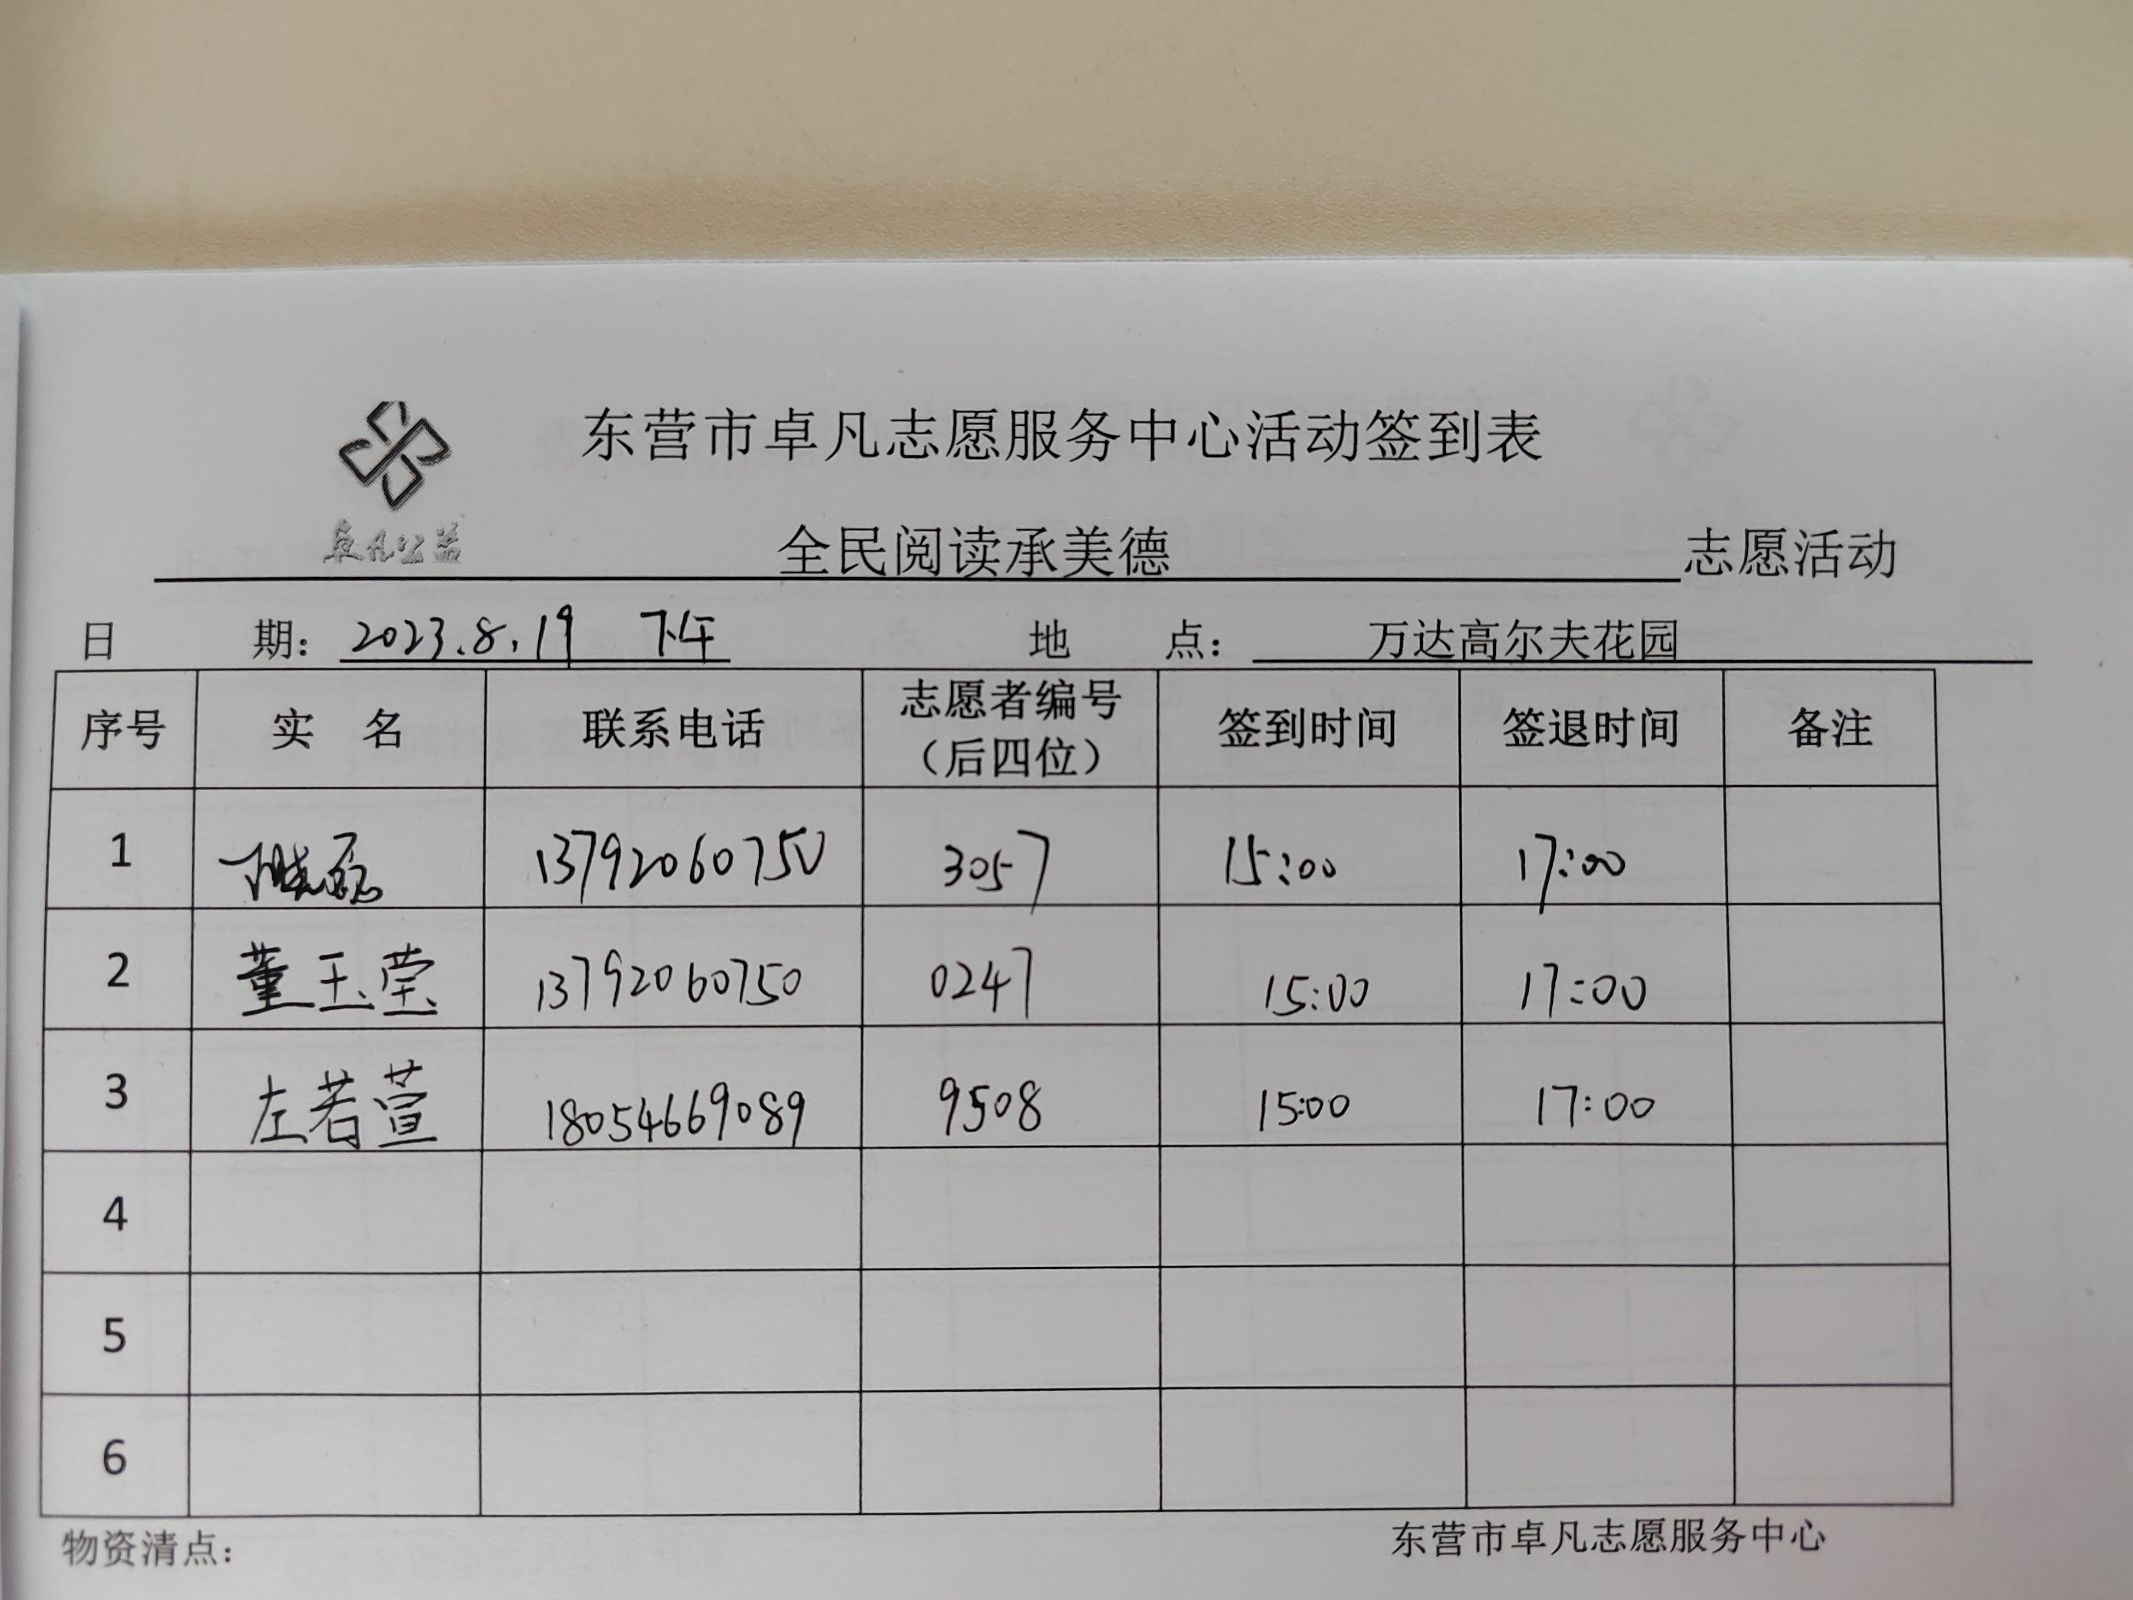 东营市卓凡志愿服务中心活动签到表
卓凡公益
全民阅读承美德 志愿活动
日 期：2023.8.19 下午 地 点：万达高尔夫花园
序号 实 名 联系电话 志愿者编号（后四位） 签到时间 签退时间 备注
1 13792060750 3057 15:00 17:00
2 董玉莹 13792060750 0247 15:00 17:00
3 左若萱 18054669089 9508 15:00 17:00
4
5
6
物资清点： 东营市卓凡志愿服务中心